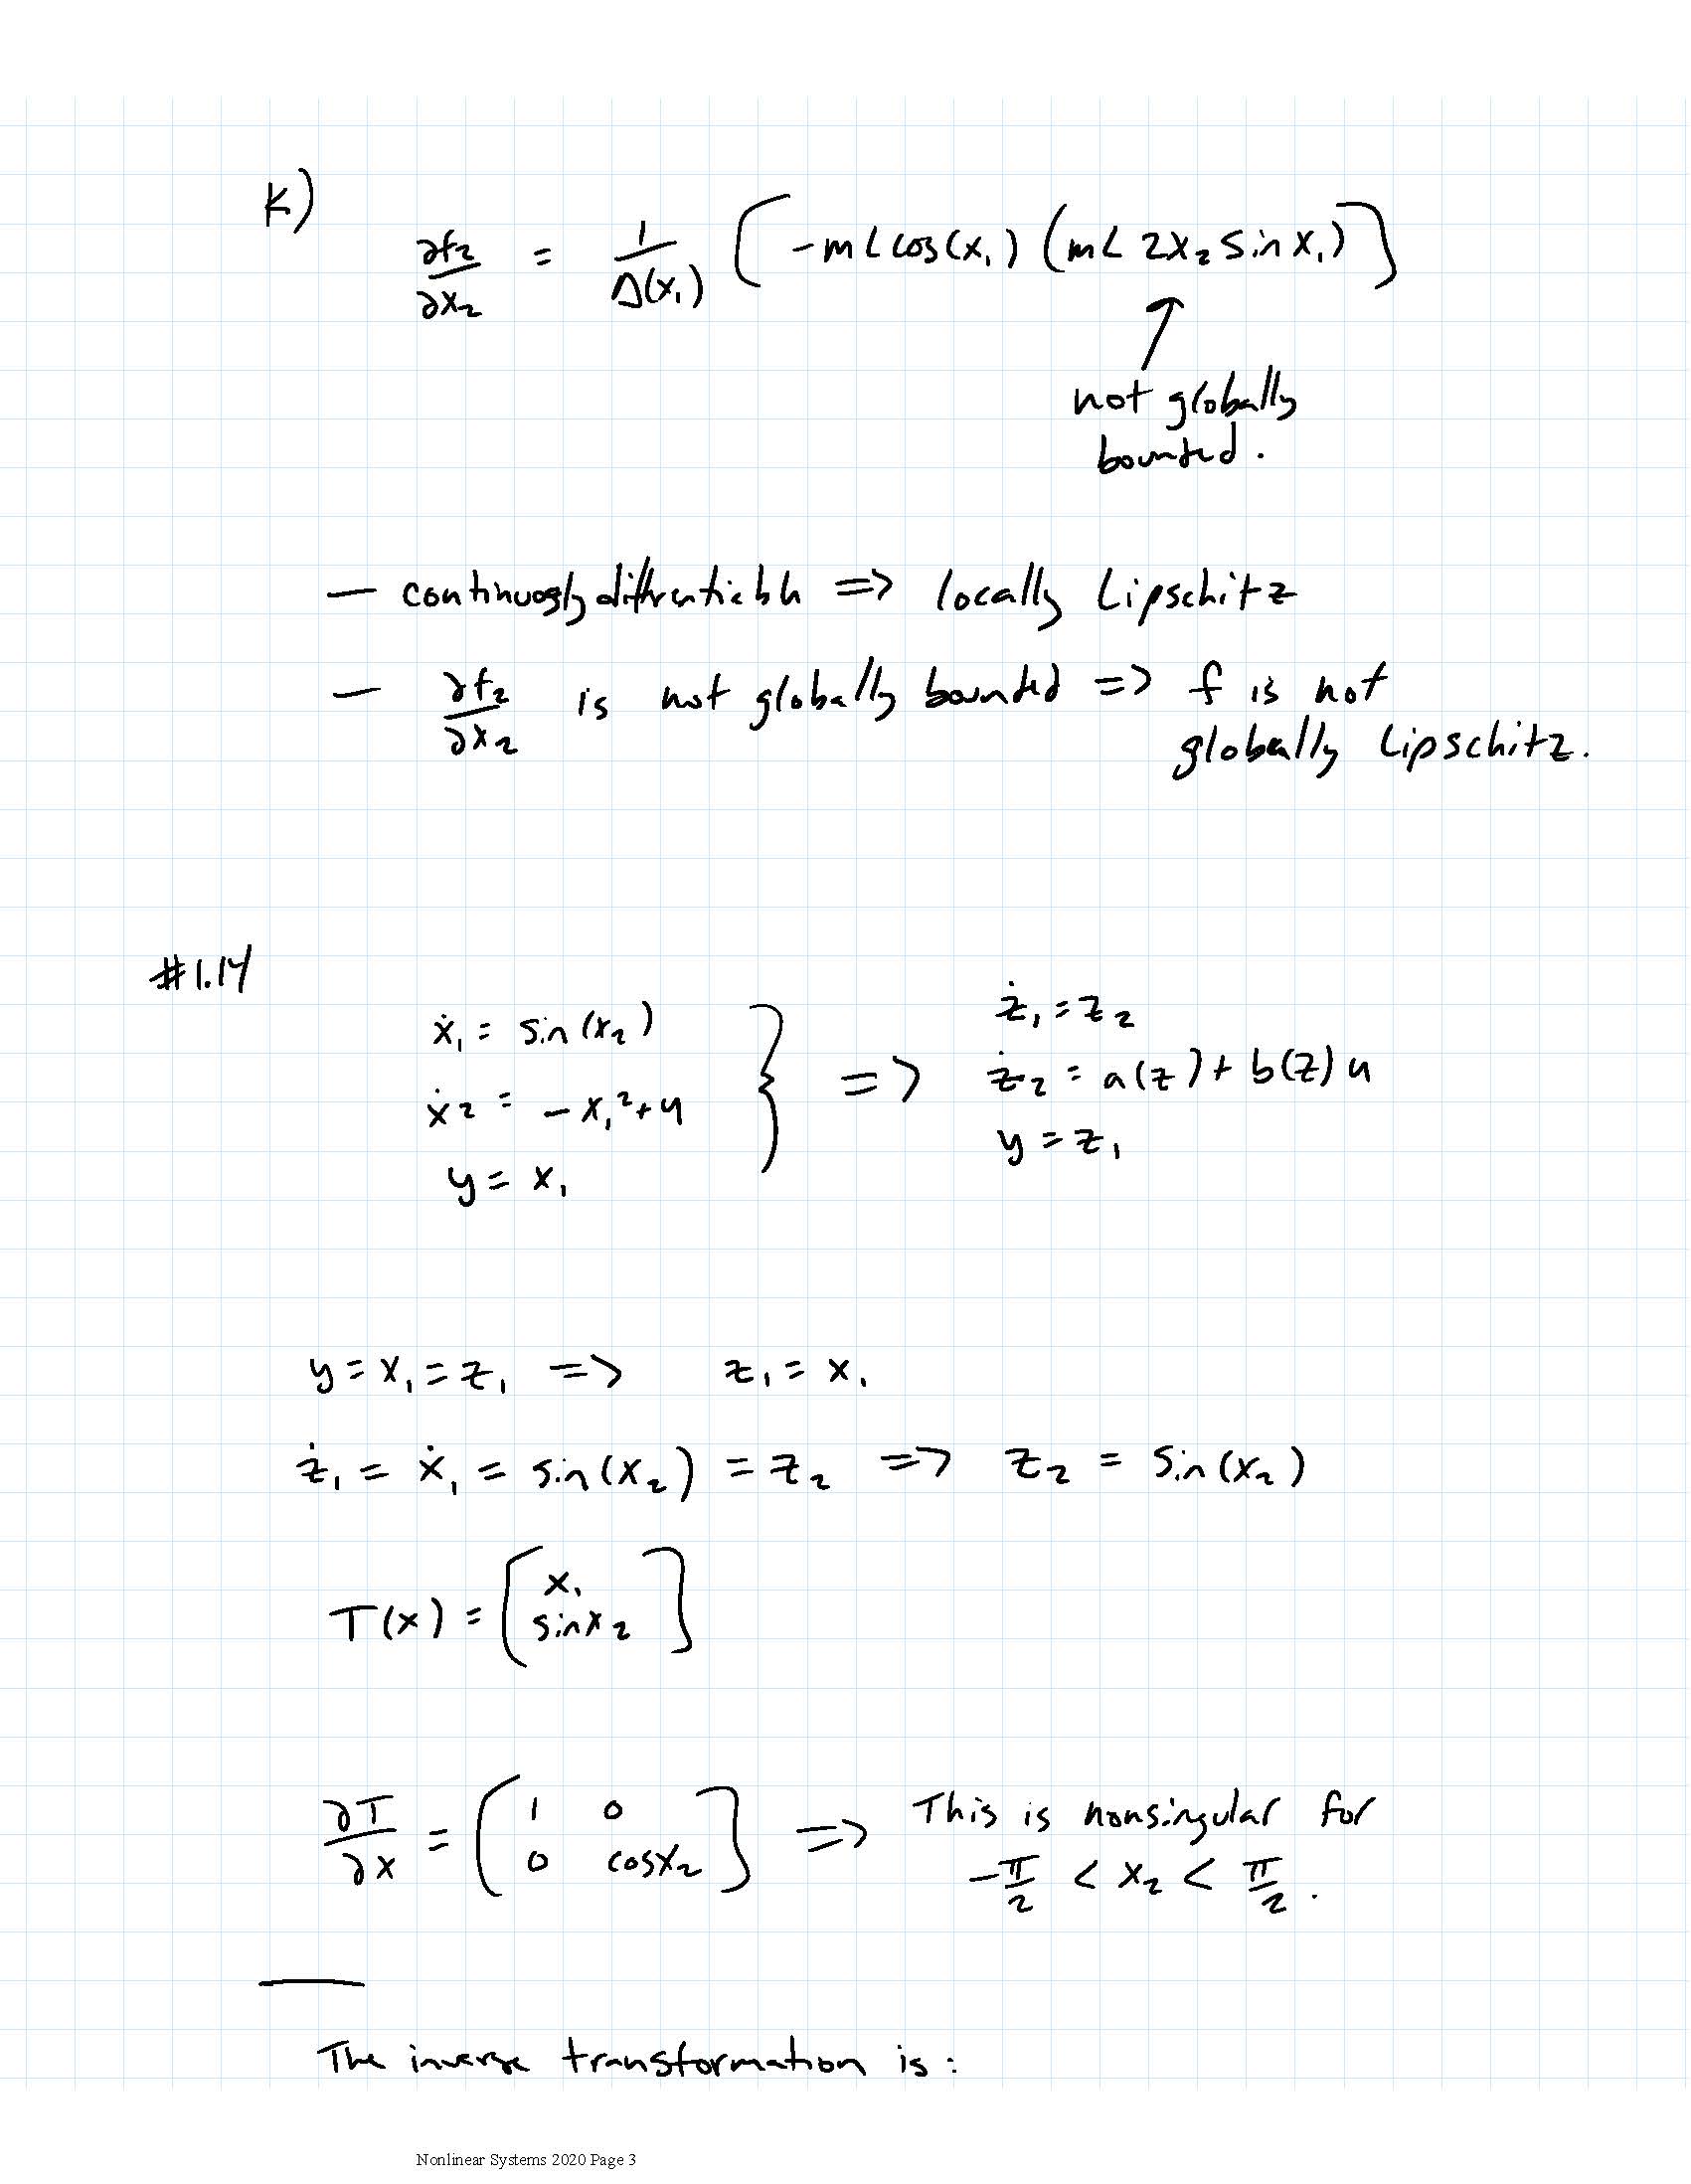 K)
∂f₂/∂x₂ = 1/Δ(x₁) [ -mL cos(x₁) (mL 2x₂ sin x₁) ]
not globally
bounded.
— continuously differentiable => locally Lipschitz
— ∂f₂/∂x₂ is not globally bounded => f is not
globally Lipschitz.
#1.14
ẋ₁ = sin(x₂)
ẋ₂ = -x₁² + u
y = x₁
} =>
ż₁ = z₂
ż₂ = a(z) + b(z) u
y = z₁
y = x₁ = z₁ => z₁ = x₁
ż₁ = ẋ₁ = sin(x₂) = z₂ => z₂ = sin(x₂)
T(x) = [ x₁
sin x₂ ]
∂T/∂x = [ 1 0
0 cos x₂ ] => This is nonsingular for
-π/2 < x₂ < π/2.
The inverse transformation is:
Nonlinear Systems 2020 Page 3